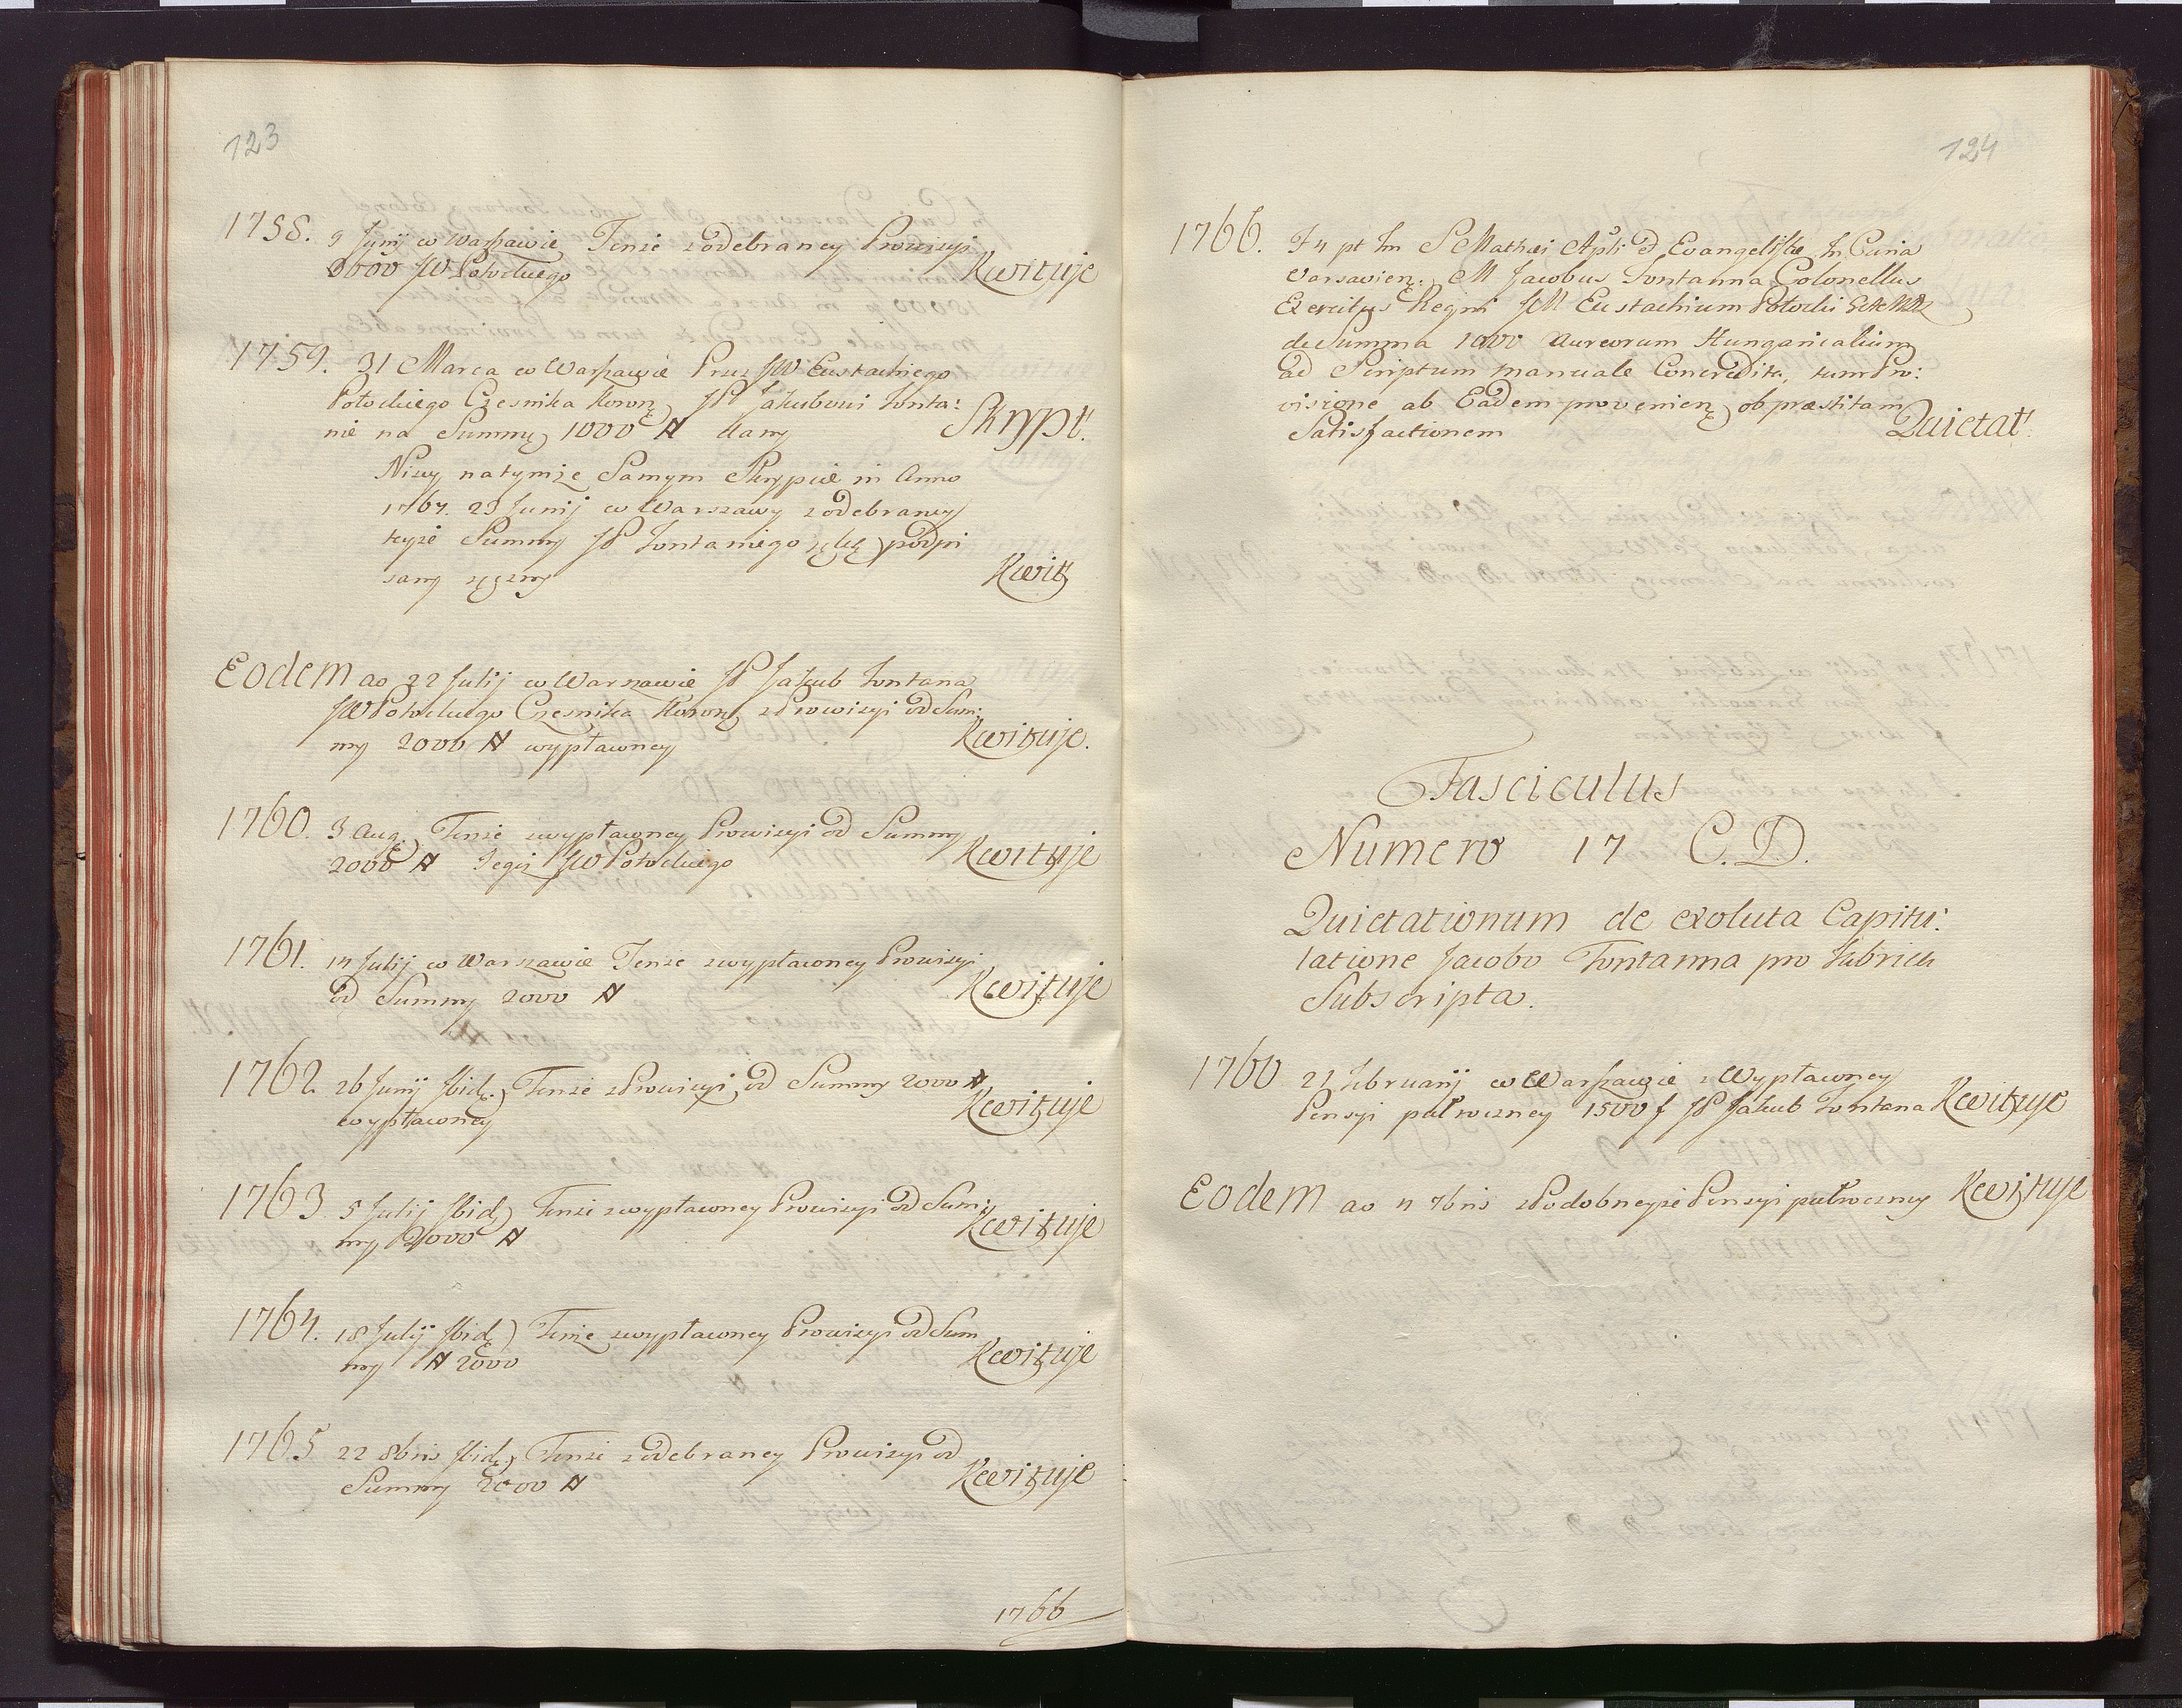 123
1758. 9 Junij w Warszawie Tenże z odebraney Prowizyi
JW Potockiego Kwituje
1759. 31 Marca w Warszawie Przez JW Eustachiego
Potockiego Czesnika Koron JP Jakubowi Fonta:
nie na Summę 1000 # dany Skrypt.
Niżey na tymże Samym Skrypcie in Anno
1767. 23 Junij w Warszawy z odebraney
teyże Summy JP Fontaniego ręką podpi
sany ręczny Kwit
Eodem ao 22 Julij w Warszawie JP Jakub Fontana
JW Potockiego Czesnika Koron z Prowizyi od Sum:
my 2000 # wypłaconey Kwituje.
1760. 3 Aug. Tenże z wypłaconey Prowizyi od Summy
2000 # Tegoż JW Potockiego Kwituje
1761. 14 Julij w Warszawie Tenże z wypłaconey Prowizyi
od Summy 2000 # Kwituje
1762. 26 Junij Ibid. Tenże z Prowizyi od Summy 2000 #
wypłaconey Kwituje
1763 5 Julij Ibid Tenże z wypłaconey Prowizyi od Sum:
my 2000 # Kwituje
1764. 18 Julij Ibid Tenże z wypłaconey Prowizyi od Sum
my # 2000 Kwituje
1765 22 8bris Ibid Tenże z odebraney Prowizyi od
Summy 2000 # Kwituje
1766
124
1766. F 4 pt Fm S Mathæi Apli & Evangelistæ In Curia
Varsavien. M Jacobus Fontanna Colonellus
Exercitus Regni JM Eustachium Potocki
de Summa 1000 Aureorum Hungaricalium
ad Scriptum manuale Concredita, tum Pro:
visione ab Eadem provenien ob præstitam
Satisfactionem Quietat.
Fasciculus
Numero 17 C.D.
Quietationum de exoluta Capitu:
latione Jacobo Fontanna pro Fabrica
Subscripta.
1760 21 Februarij w Warszawie z Wypłaconey
Pensyi pułroczney 1500 f JP Jakub Fontana Kwituje
Eodem ao 4 7bris z Podobneyże Pensyi pułroczney Kwituje